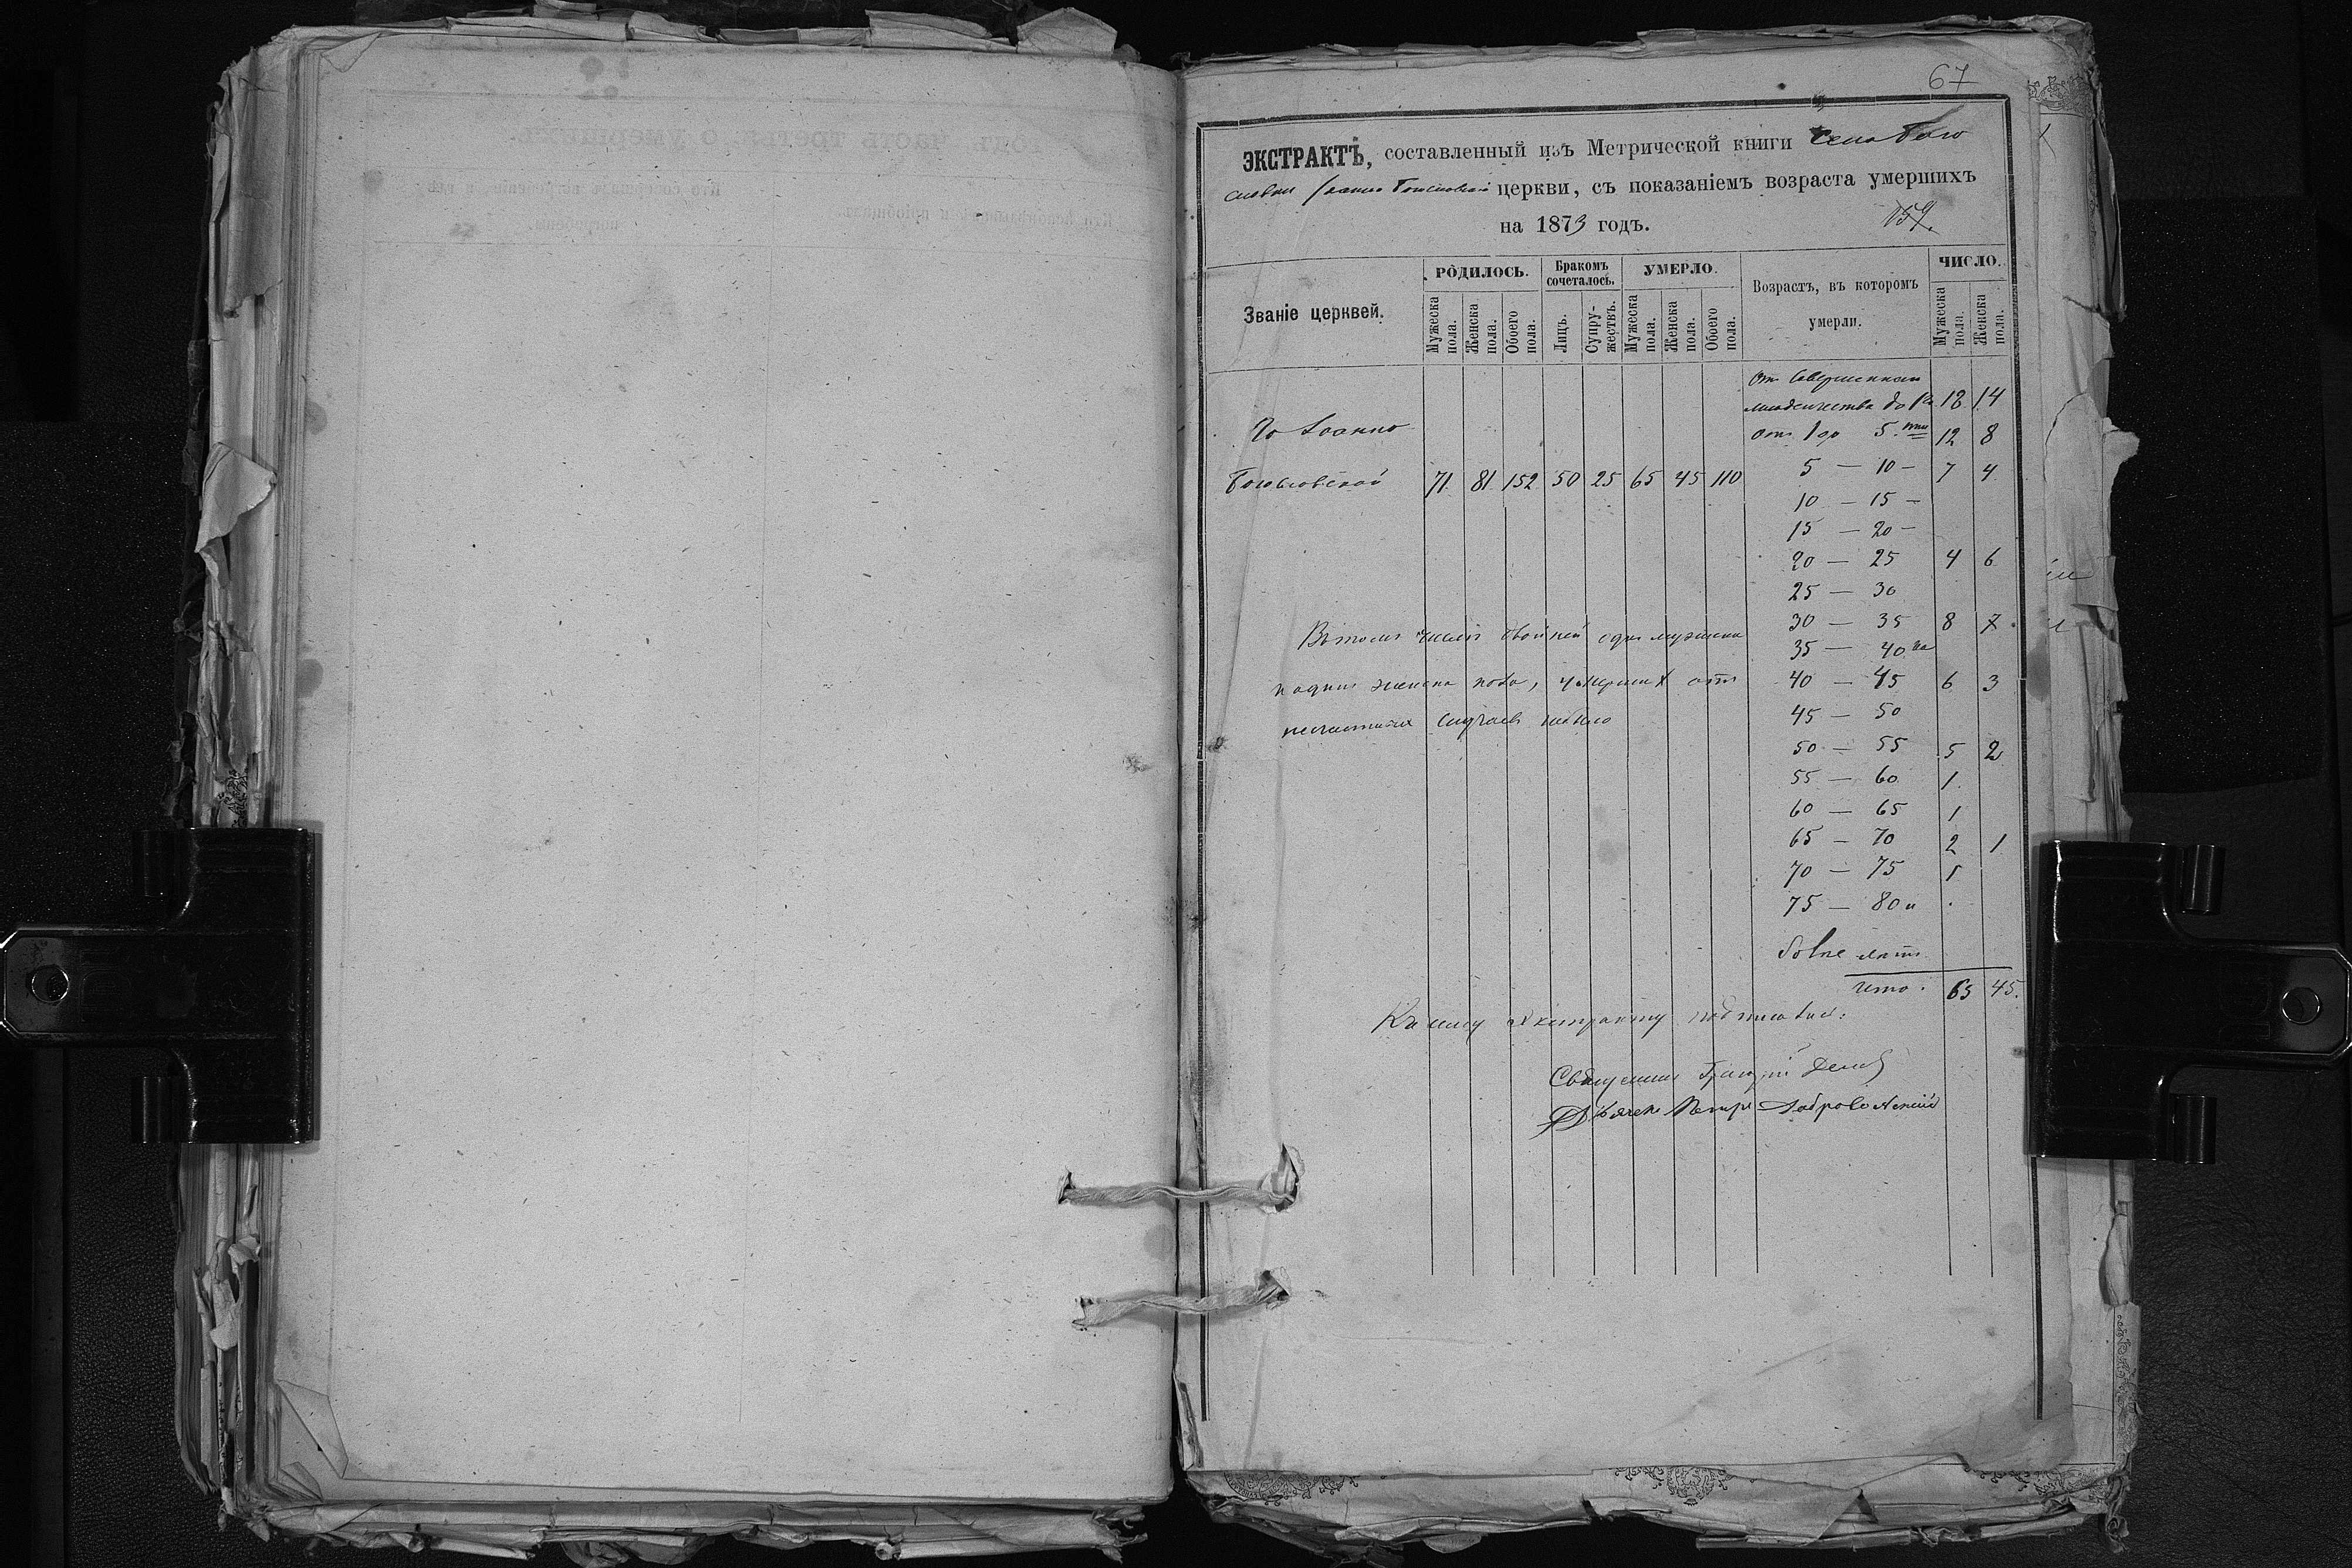 67
ЭКСТРАКТЪ, составленный изъ Метрической книги Села Бого
словки Іоанно Богословской церкви, съ показаніемъ возраста умершихъ
на 1873 годъ.
159.
Званіе церквей.
РОДИЛОСЬ.
Мужеска пола.
Женска пола.
Обоего пола.
Бракомъ сочеталось.
Лицъ.
Супружествъ.
УМЕРЛО.
Мужеска пола.
Женска пола.
Обоего пола.
Возрастъ, въ которомъ
умерли.
ЧИСЛО.
Мужеска пола.
Женска пола.
По Іоанно
Богословской 71 81 152 50 25 65 45 110
От совершеннаго
младенчества до 1го 18 14
отъ 1 до 5.ти 12 8
5 — 10 — 7 4
10 — 15 —
15 — 20 —
20 — 25 4 6
25 — 30
30 — 35 8 7
35 — 40
40 — 45 6 3
45 — 50
50 — 55 5 2
55 — 60 1
60 — 65 1
65 — 70 2 1
70 — 75 1
75 — 80 и
болѣе лѣтъ
Итого. 65 45.
Въ томъ числѣ двойней одна мужска
и одна женска пола, умершихъ отъ
несчастныхъ случаевъ небыло
Къ сему экстракту подписались:
Священникъ Григорій
Дьячекъ Петръ Добровольскій